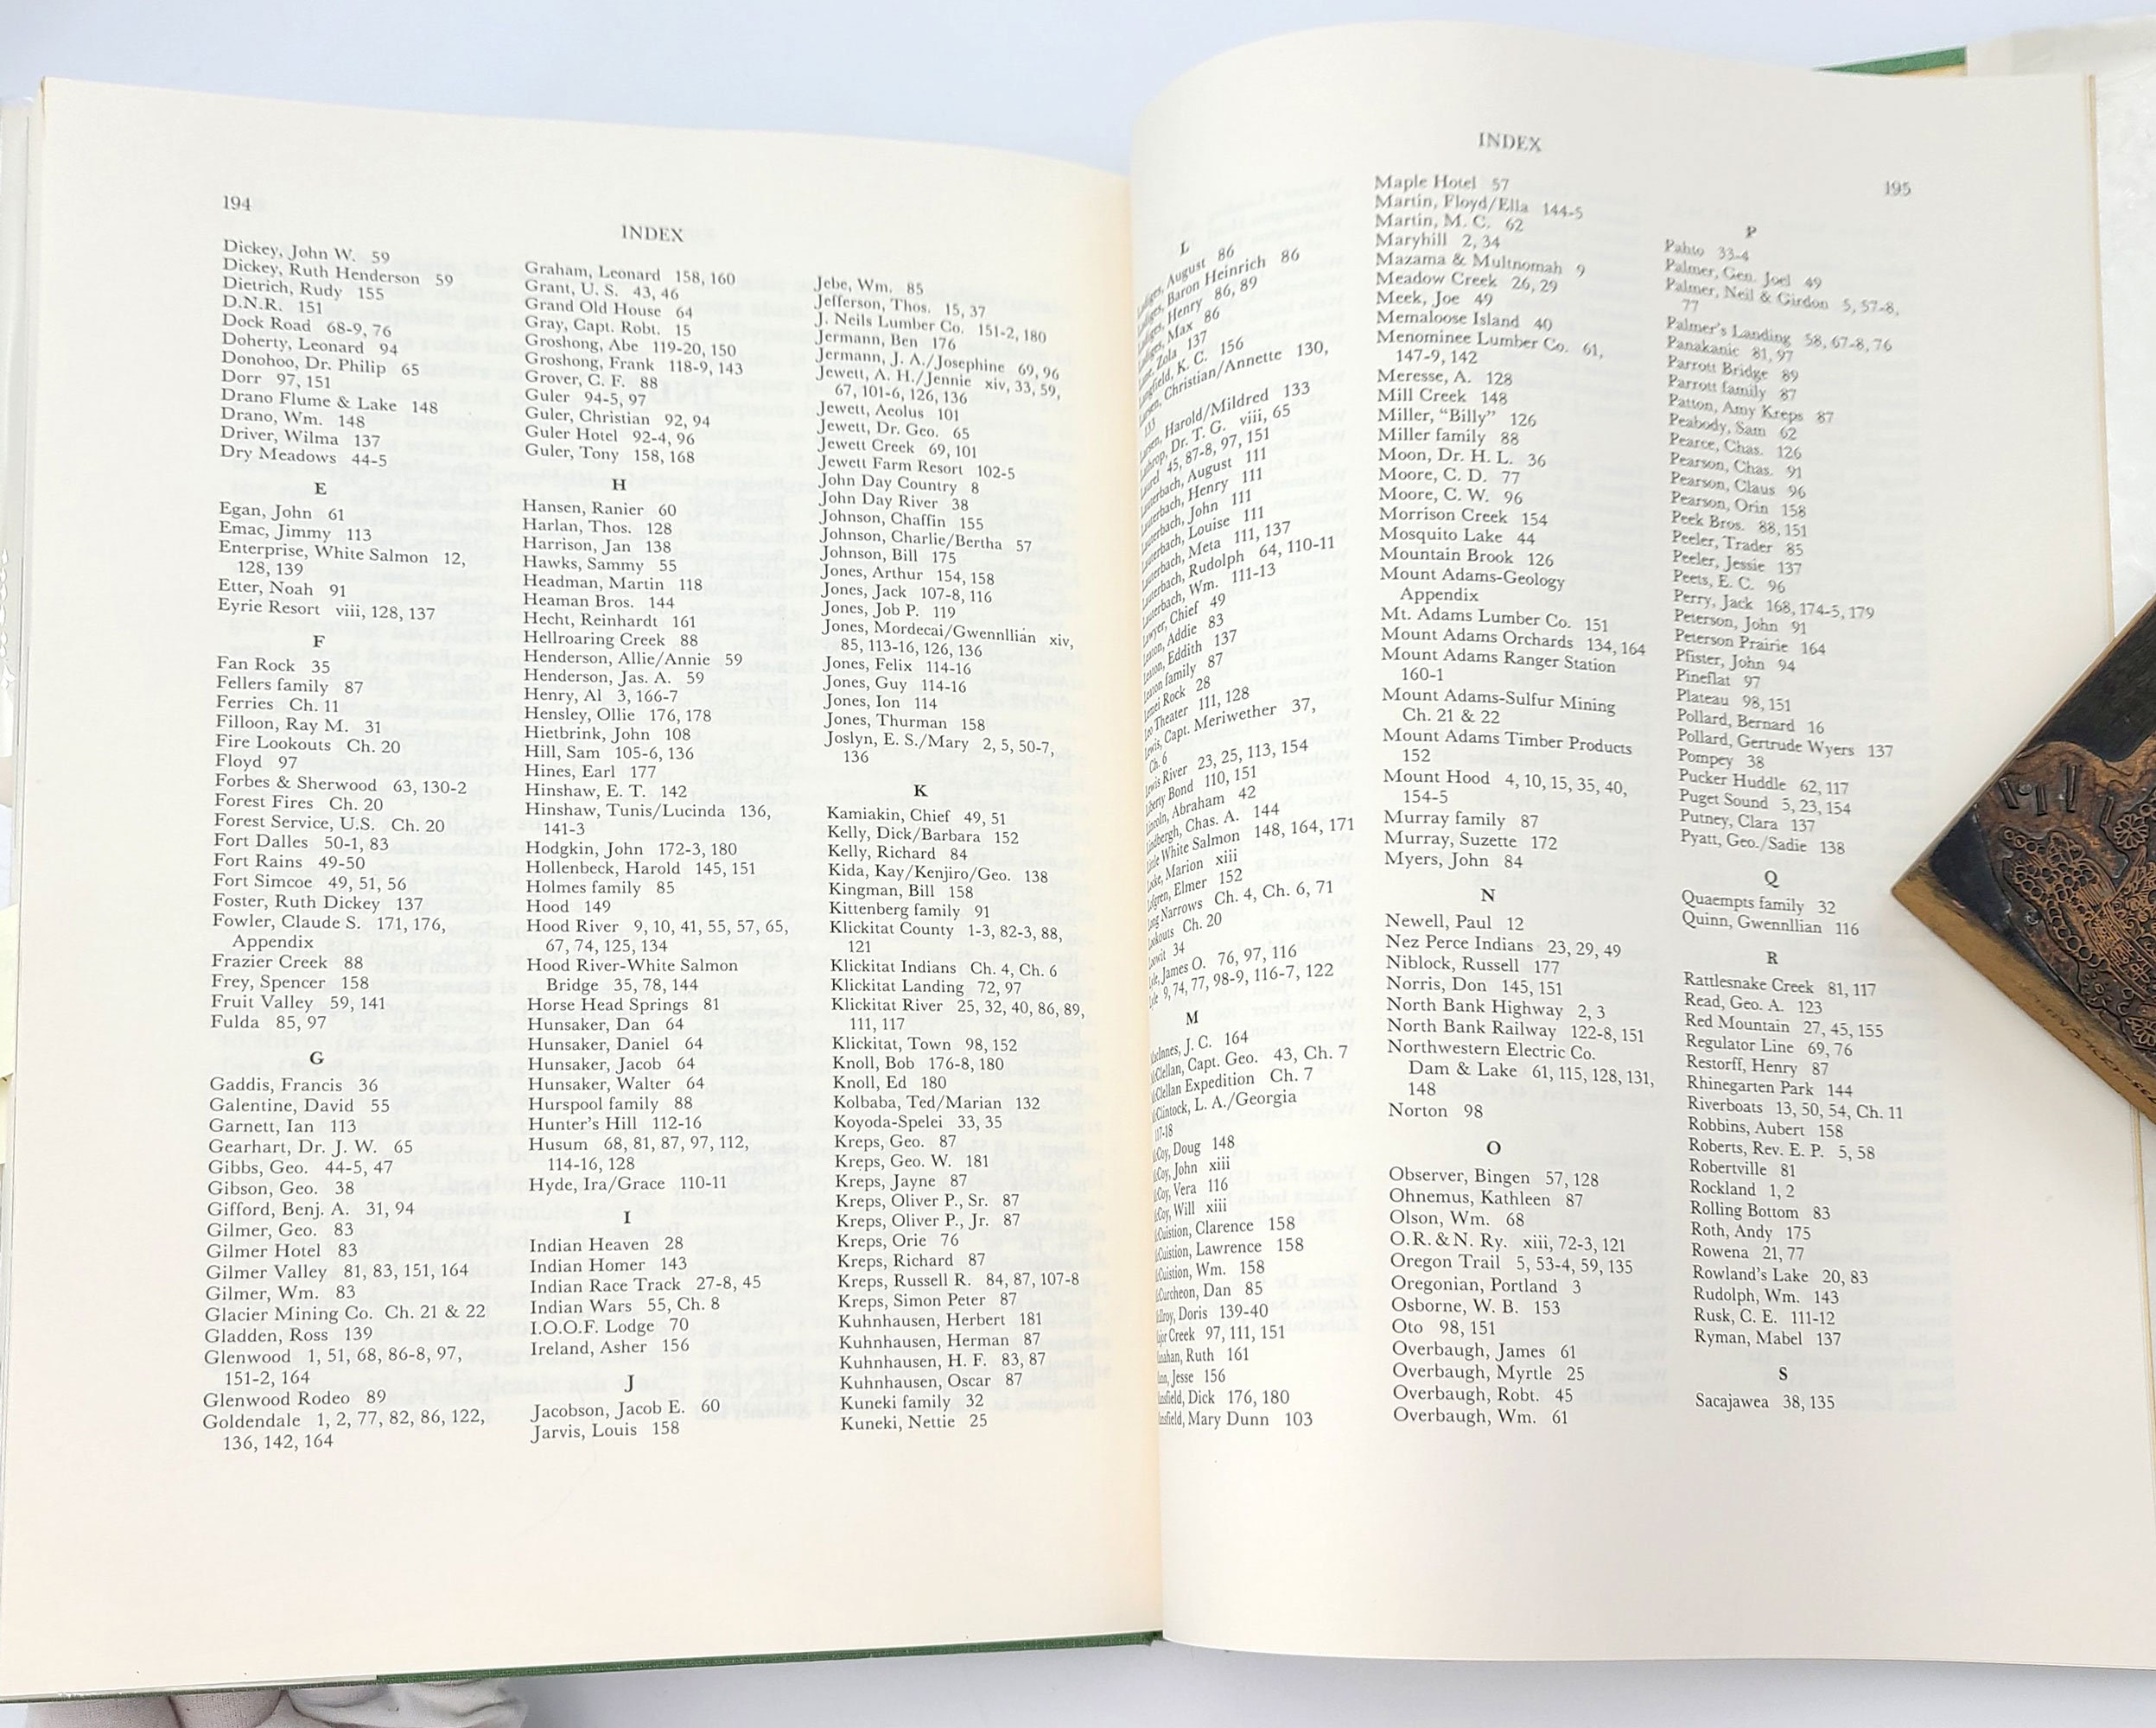 194
INDEX
Dickey, John W. 59
Dickey, Ruth Henderson 59
Dietrich, Rudy 155
D.N.R. 151
Dock Road 68-9, 76
Doherty, Leonard 94
Donohoo, Dr. Philip 65
Dorr 97, 151
Drano Flume & Lake 148
Drano, Wm. 148
Driver, Wilma 137
Dry Meadows 44-5
E
Egan, John 61
Emac, Jimmy 113
Enterprise, White Salmon 12,
128, 139
Etter, Noah 91
Eyrie Resort viii, 128, 137
F
Fan Rock 35
Fellers family 87
Ferries Ch. 11
Filloon, Ray M. 31
Fire Lookouts Ch. 20
Floyd 97
Forbes & Sherwood 63, 130-2
Forest Fires Ch. 20
Forest Service, U.S. Ch. 20
Fort Dalles 50-1, 83
Fort Rains 49-50
Fort Simcoe 49, 51, 56
Foster, Ruth Dickey 137
Fowler, Claude S. 171, 176,
Appendix
Frazier Creek 88
Frey, Spencer 158
Fruit Valley 59, 141
Fulda 85, 97
G
Gaddis, Francis 36
Galentine, David 55
Garnett, Ian 113
Gearhart, Dr. J. W. 65
Gibbs, Geo. 44-5, 47
Gibson, Geo. 38
Gifford, Benj. A. 31, 94
Gilmer, Geo. 83
Gilmer Hotel 83
Gilmer Valley 81, 83, 151, 164
Gilmer, Wm. 83
Glacier Mining Co. Ch. 21 & 22
Gladden, Ross 139
Glenwood 1, 51, 68, 86-8, 97,
151-2, 164
Glenwood Rodeo 89
Goldendale 1, 2, 77, 82, 86, 122,
136, 142, 164
Graham, Leonard 158, 160
Grant, U. S. 43, 46
Grand Old House 64
Gray, Capt. Robt. 15
Groshong, Abe 119-20, 150
Groshong, Frank 118-9, 143
Grover, C. F. 88
Guler 94-5, 97
Guler, Christian 92, 94
Guler Hotel 92-4, 96
Guler, Tony 158, 168
H
Hansen, Ranier 60
Harlan, Thos. 128
Harrison, Jan 138
Hawks, Sammy 55
Headman, Martin 118
Heaman Bros. 144
Hecht, Reinhardt 161
Hellroaring Creek 88
Henderson, Allie/Annie 59
Henderson, Jas. A. 59
Henry, Al 3, 166-7
Hensley, Ollie 176, 178
Hietbrink, John 108
Hill, Sam 105-6, 136
Hines, Earl 177
Hinshaw, E. T. 142
Hinshaw, Tunis/Lucinda 136,
141-3
Hodgkin, John 172-3, 180
Hollenbeck, Harold 145, 151
Holmes family 85
Hood 149
Hood River 9, 10, 41, 55, 57, 65,
67, 74, 125, 134
Hood River-White Salmon
Bridge 35, 78, 144
Horse Head Springs 81
Hunsaker, Dan 64
Hunsaker, Daniel 64
Hunsaker, Jacob 64
Hunsaker, Walter 64
Hurspool family 88
Hunter's Hill 112-16
Husum 68, 81, 87, 97, 112,
114-16, 128
Hyde, Ira/Grace 110-11
I
Indian Heaven 28
Indian Homer 143
Indian Race Track 27-8, 45
Indian Wars 55, Ch. 8
I.O.O.F. Lodge 70
Ireland, Asher 156
J
Jacobson, Jacob E. 60
Jarvis, Louis 158
Jebe, Wm. 85
Jefferson, Thos. 15, 37
J. Neils Lumber Co. 151-2, 180
Jermann, Ben 176
Jermann, J. A./Josephine 69, 96
Jewett, A. H./Jennie xiv, 33, 59,
67, 101-6, 126, 136
Jewett, Aeolus 101
Jewett, Dr. Geo. 65
Jewett Creek 69, 101
Jewett Farm Resort 102-5
John Day Country 8
John Day River 38
Johnson, Chaffin 155
Johnson, Charlie/Bertha 57
Johnson, Bill 175
Jones, Arthur 154, 158
Jones, Jack 107-8, 116
Jones, Job P. 119
Jones, Mordecai/Gwennllian xiv,
85, 113-16, 126, 136
Jones, Felix 114-16
Jones, Guy 114-16
Jones, Ion 114
Jones, Thurman 158
Joslyn, E. S./Mary 2, 5, 50-7,
136
K
Kamiakin, Chief 49, 51
Kelly, Dick/Barbara 152
Kelly, Richard 84
Kida, Kay/Kenjiro/Geo. 138
Kingman, Bill 158
Kittenberg family 91
Klickitat County 1-3, 82-3, 88,
121
Klickitat Indians Ch. 4, Ch. 6
Klickitat Landing 72, 97
Klickitat River 25, 32, 40, 86, 89,
111, 117
Klickitat, Town 98, 152
Knoll, Bob 176-8, 180
Knoll, Ed 180
Kolbaba, Ted/Marian 132
Koyoda-Spelei 33, 35
Kreps, Geo. 87
Kreps, Geo. W. 181
Kreps, Jayne 87
Kreps, Oliver P., Sr. 87
Kreps, Oliver P., Jr. 87
Kreps, Orie 76
Kreps, Richard 87
Kreps, Russell R. 84, 87, 107-8
Kreps, Simon Peter 87
Kuhnhausen, Herbert 181
Kuhnhausen, Herman 87
Kuhnhausen, H. F. 83, 87
Kuhnhausen, Oscar 87
Kuneki family 32
Kuneki, Nettie 25
INDEX
195
L
August 86
Baron Heinrich 86
Henry 86, 89
Max 86
Zola 137
K. C. 156
Christian/Annette 130,
133
Harold/Mildred 133
Dr. T. G. viii, 65
Laurel 45, 87-8, 97, 151
Lauterbach, August 111
Lauterbach, Henry 111
Lauterbach, John 111
Lauterbach, Louise 111
Lauterbach, Meta 111, 137
Lauterbach, Rudolph 64, 110-11
Lauterbach, Wm. 111-13
Lawyer, Chief 49
Addie 83
Eddith 137
family 87
Rock 28
Theater 111, 128
Lewis, Capt. Meriwether 37,
Ch. 6
Lewis River 23, 25, 113, 154
Liberty Bond 110, 151
Lincoln, Abraham 42
Lindbergh, Chas. A. 144
Little White Salmon 148, 164, 171
Marion xiii
Elmer 152
Long Narrows Ch. 4, Ch. 6, 71
Lookouts Ch. 20
34
James O. 76, 97, 116
Lyle 9, 74, 77, 98-9, 116-7, 122
M
J. C. 164
McClellan, Capt. Geo. 43, Ch. 7
McClellan Expedition Ch. 7
McClintock, L. A./Georgia
117-18
McCoy, Doug 148
McCoy, John xiii
McCoy, Vera 116
McCoy, Will xiii
McCuistion, Clarence 158
McCuistion, Lawrence 158
McCuistion, Wm. 158
McCurcheon, Dan 85
Doris 139-40
Major Creek 97, 111, 151
Ruth 161
Jesse 156
Mansfield, Dick 176, 180
Mansfield, Mary Dunn 103
Maple Hotel 57
Martin, Floyd/Ella 144-5
Martin, M. C. 62
Maryhill 2, 34
Mazama & Multnomah 9
Meadow Creek 26, 29
Meek, Joe 49
Memaloose Island 40
Menominee Lumber Co. 61,
147-9, 142
Meresse, A. 128
Mill Creek 148
Miller, "Billy" 126
Miller family 88
Moon, Dr. H. L. 36
Moore, C. D. 77
Moore, C. W. 96
Morrison Creek 154
Mosquito Lake 44
Mountain Brook 126
Mount Adams-Geology
Appendix
Mt. Adams Lumber Co. 151
Mount Adams Orchards 134, 164
Mount Adams Ranger Station
160-1
Mount Adams-Sulfur Mining
Ch. 21 & 22
Mount Adams Timber Products
152
Mount Hood 4, 10, 15, 35, 40,
154-5
Murray family 87
Murray, Suzette 172
Myers, John 84
N
Newell, Paul 12
Nez Perce Indians 23, 29, 49
Niblock, Russell 177
Norris, Don 145, 151
North Bank Highway 2, 3
North Bank Railway 122-8, 151
Northwestern Electric Co.
Dam & Lake 61, 115, 128, 131,
148
Norton 98
O
Observer, Bingen 57, 128
Ohnemus, Kathleen 87
Olson, Wm. 68
O.R. & N. Ry. xiii, 72-3, 121
Oregon Trail 5, 53-4, 59, 135
Oregonian, Portland 3
Osborne, W. B. 153
Oto 98, 151
Overbaugh, James 61
Overbaugh, Myrtle 25
Overbaugh, Robt. 45
Overbaugh, Wm. 61
P
Pahto 33-4
Palmer, Gen. Joel 49
Palmer, Neil & Girdon 5, 57-8,
77
Palmer's Landing 58, 67-8, 76
Panakanic 81, 97
Parrott Bridge 89
Parrott family 87
Patton, Amy Kreps 87
Peabody, Sam 62
Pearce, Chas. 126
Pearson, Chas. 91
Pearson, Claus 96
Pearson, Orin 158
Peek Bros. 88, 151
Peeler, Trader 85
Peeler, Jessie 137
Peets, E. C. 96
Perry, Jack 168, 174-5, 179
Peterson, John 91
Peterson Prairie 164
Pfister, John 94
Pineflat 97
Plateau 98, 151
Pollard, Bernard 16
Pollard, Gertrude Wyers 137
Pompey 38
Pucker Huddle 62, 117
Puget Sound 5, 23, 154
Putney, Clara 137
Pyatt, Geo./Sadie 138
Q
Quaempts family 32
Quinn, Gwennllian 116
R
Rattlesnake Creek 81, 117
Read, Geo. A. 123
Red Mountain 27, 45, 155
Regulator Line 69, 76
Restorff, Henry 87
Rhinegarten Park 144
Riverboats 13, 50, 54, Ch. 11
Robbins, Aubert 158
Roberts, Rev. E. P. 5, 58
Robertville 81
Rockland 1, 2
Rolling Bottom 83
Roth, Andy 175
Rowena 21, 77
Rowland's Lake 20, 83
Rudolph, Wm. 143
Rusk, C. E. 111-12
Ryman, Mabel 137
S
Sacajawea 38, 135